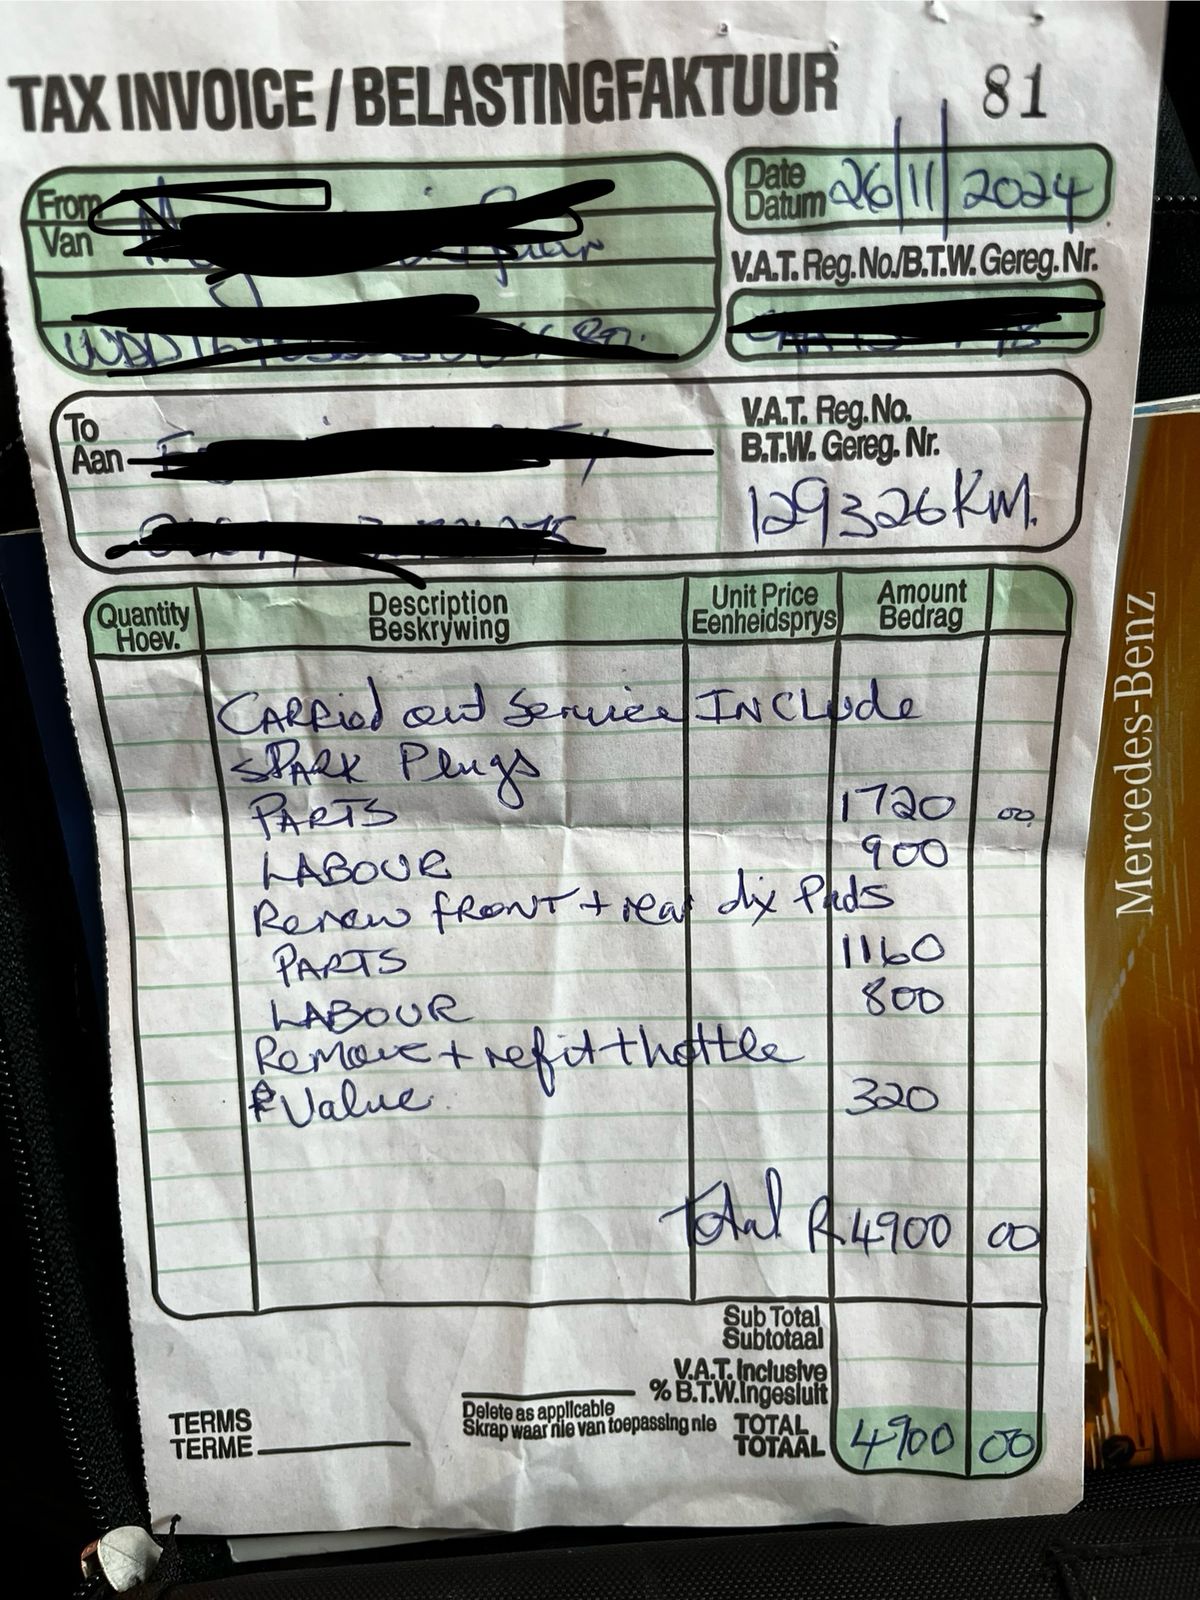 TAX INVOICE / BELASTINGFAKTUUR 81
From
Van
Date
Datum 26/11/2024
V.A.T. Reg.No./B.T.W. Gereg.Nr.
To
Aan
V.A.T. Reg.No.
B.T.W. Gereg. Nr.
129326 KM.
Quantity Description Unit Price Amount
Hoev. Beskrywing Eenheidsprys Bedrag
CARRied out Service INCLude
SPARK Plugs
PARTS 1720 00
LABOUR 900
Renew FRONT + rear Pads
PARTS 1160
LABOUR 800
Remove + refit thottle
Value 320
Total R4900 00
Sub Total
Subtotaal
V.A.T. Inclusive
% B.T.W. Ingesluit
Delete as applicable
Skrap waar nie van toepassing nie
TERMS
TERME
TOTAL
TOTAAL 4900 00
Mercedes-Benz